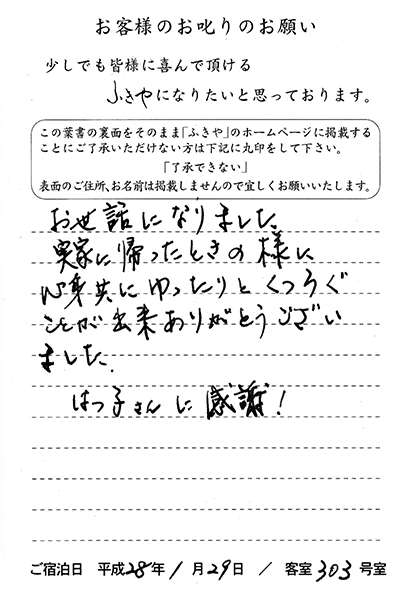 お客様のお叱りのお願い
少しでも皆様に喜んで頂ける
ふきやになりたいと思っております。
この葉書の裏面をそのまま「ふきや」のホームページに掲載する
ことにご了承いただけない方は下記に丸印をして下さい。
「了承できない」
表面のご住所、お名前は掲載しませんので宜しくお願いいたします。
お世話になりました。
実家に帰ったときの様に
心身共にゆったりとくつろぐ
ことが出来ありがとうござい
ました。
はつ子さんに感謝!
ご宿泊日 平成28年1月29日 / 客室303号室